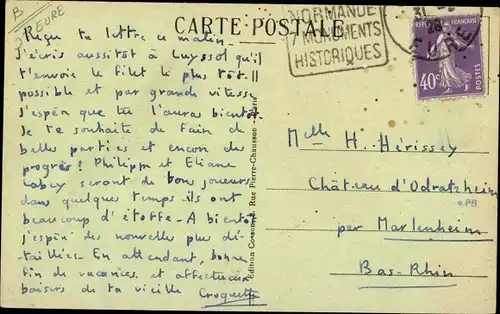 B
EURE
CARTE POSTALE
NORMANDE
MONUMENTS
HISTORIQUES
31
26
EURE
40c
POSTES
Reçu ta lettre ce matin
J'écris aussitôt à Luyssol qu'il
t'envoie le filet le plus tôt
possible et par grande vitesse
J'espère que tu l'auras bientôt
Je te souhaite de faire de
belles parties et encore des
progrès! Philippe et Eliane
Labey seront de bons joueurs
dans quelques temps - ils ont
beaucoup d'étoffe - A bientôt
j'espère des nouvelles plus dé-
taillées. En attendant, bonne
fin de vacances et affectueux
baisers de ta vieille Croquette
Edition Rue Pierre-Chausson
Melle H. Hérissey
Château d'Odratzheim
*PB
par Marlenheim
Bas-Rhin